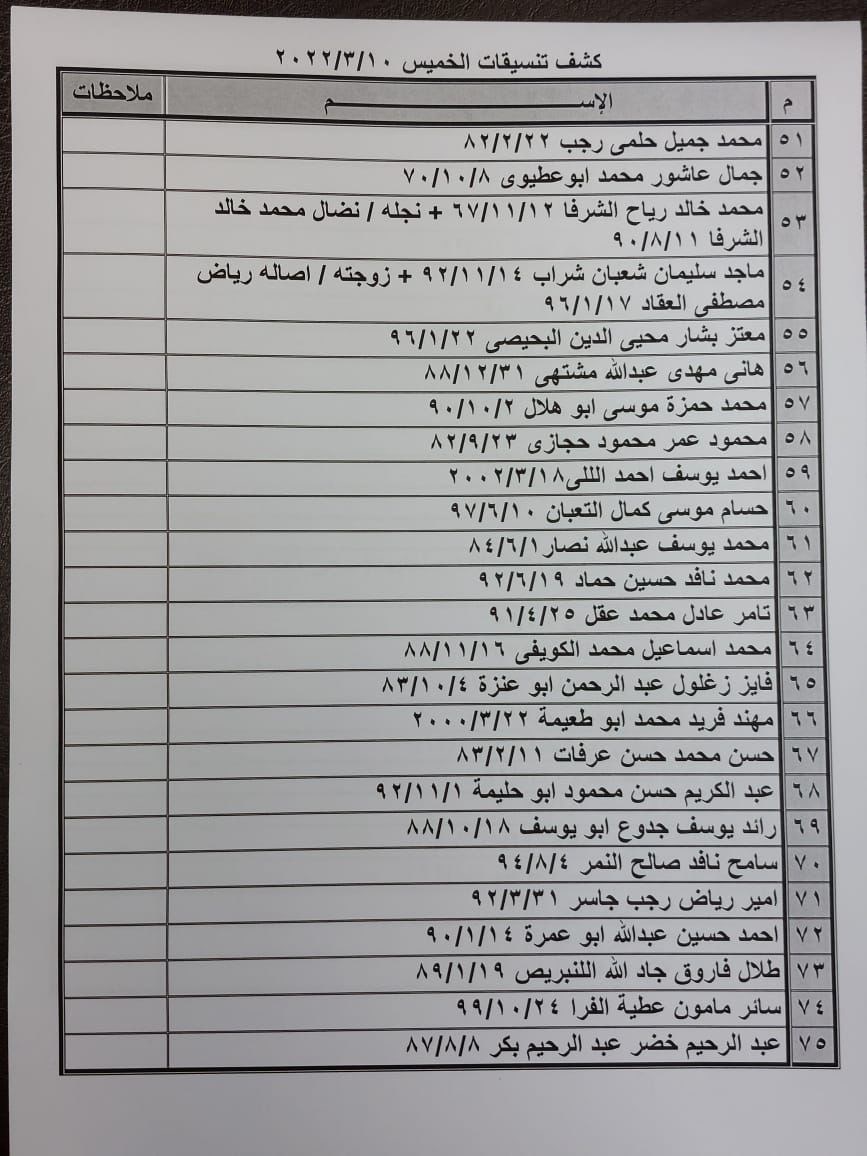 كشف تنسيقات الخميس ٢٠٢٢/٣/١٠
م الإســـــــــم ملاحظات
٥١ محمد جميل حلمى رجب ٨٢/٢/٢٢
٥٢ جمال عاشور محمد ابوعطيوى ٧٠/١٠/٨
٥٣ محمد خالد رياح الشرفا ٦٧/١١/١٢ + نجله / نضال محمد خالد
الشرفا ٩٠/٨/١١
٥٤ ماجد سليمان شعبان شراب ٩٢/١١/١٤ + زوجته / اصاله رياض
مصطفى العقاد ٩٦/١/١٧
٥٥ معتز بشار محيى الدين البحيصى ٩٦/١/٢٢
٥٦ هانى مهدى عبدالله مشتهى ٨٨/١٢/٣١
٥٧ محمد حمزة موسى ابو هلال ٩٠/١٠/٢
٥٨ محمود عمر محمود حجازى ٨٢/٩/٢٣
٥٩ احمد يوسف احمد اللى٢٠٠٢/٣/١٨
٦٠ حسام موسى كمال التعبان ٩٧/٦/١٠
٦١ محمد يوسف عبدالله نصار٨٤/٦/١
٦٢ محمد نافد حسين حماد ٩٢/٦/١٩
٦٣ تامر عادل محمد عقل ٩١/٤/٢٥
٦٤ محمد اسماعيل محمد الكويفى ٨٨/١١/١٦
٦٥ فايز زغلول عبد الرحمن ابو عنزة ٨٣/١٠/٤
٦٦ مهند فريد محمد ابو طعيمة ٢٠٠٠/٣/٢٢
٦٧ حسن محمد حسن عرفات ٨٣/٢/١١
٦٨ عبد الكريم حسن محمود ابو حليمة ٩٢/١١/١
٦٩ رائد يوسف جدوع ابو يوسف ٨٨/١٠/١٨
٧٠ سامح نافد صالح النمر ٩٤/٨/٤
٧١ امير رياض رجب جاسر ٩٢/٣/٣١
٧٢ احمد حسين عبدالله ابو عمرة ٩٠/١/١٤
٧٣ طلال فاروق جاد الله اللنبريص ٨٩/١/١٩
٧٤ سائر مامون عطية الفرا ٩٩/١٠/٢٤
٧٥ عبد الرحيم خضر عبد الرحيم بكر ٨٧/٨/٨